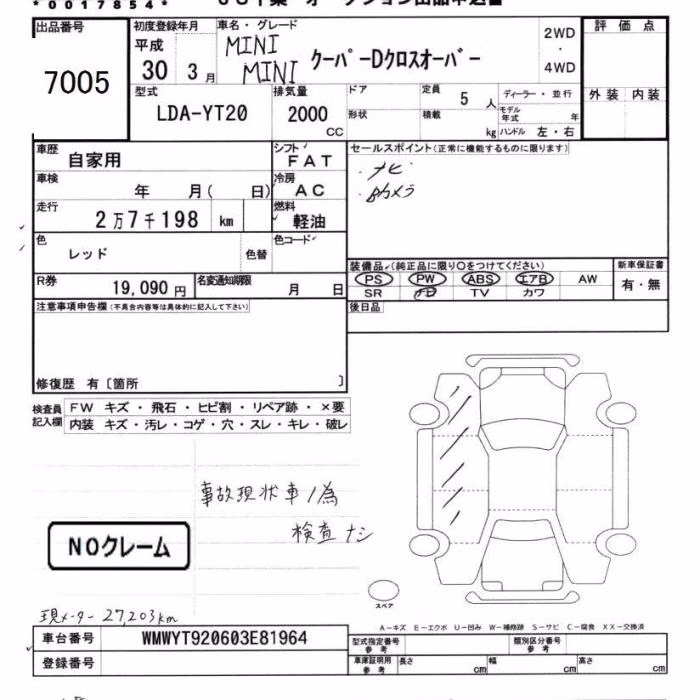 * 0 0 1 7 8 5 4 *
出品番号
7005
初度登録年月
平成
30 3 月
車名・グレード
MINI
MINI クーパーDクロスオーバー
2WD
・
4WD
評価点
外装 内装
型式
LDA-YT20
排気量
2000
CC
ドア
形状
定員 5 人
積載 kg
ディーラー・並行
モデル年式 年
ハンドル 左・右
車歴
自家用
シフト
FAT
セールスポイント(正常に機能するものに限ります)
・ナビ
・Bカメラ
車検
年 月( 日)
冷房
AC
走行
2万7千198 km
燃料
軽油
色
レッド
色替
色コード
装備品(純正品に限り〇をつけてください)
PS PW ABS エアB AW
SR TV カワ
新車保証書
有・無
R券
19,090 円
名変通知期限
月 日
後日品
注意事項申告欄(不具合内容等は具体的に記入して下さい)
修復歴 有〔箇所 〕
検査員記入欄
FW キズ・飛石・ヒビ割・リペア跡・×要
内装 キズ・汚レ・コゲ・穴・スレ・キレ・破レ
事故現状車ノ為
検査ナシ
NOクレーム
スペア
現メーター 27,203km
A-キズ E-エクボ U-凹み W-補修跡 S-サビ C-腐食 XX-交換済
車台番号
WMWYT920603E81964
登録番号
型式指定番号
参考
類別区分番号
参考
車庫証明用
参考
長さ cm
幅 cm
高さ cm